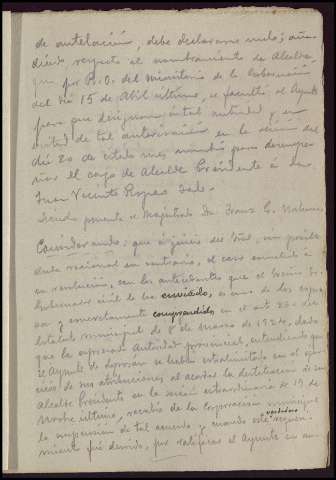 de antelación, debe declararse nulo; aña-
diendo, respecto al nombramiento de Alcalde,
que por R. O. del ministerio de la Gobernación
del día 15 de Abril último, se facultó al Ayunto
para que designara tal autoridad y, en
virtud de tal autorización en la sesión del
día 20 de citado mes nombró para desempe-
ñar el cargo de Alcalde Presidente á Dn
Juan Vicente
Siendo ponente el Magistrado Dn
Considerando: que á juicio del Tribunal, sin
en contrario, el caso sometido á
su resolución, con los antecedentes que el Excmo Sr.
Gobernador civil le ha enviado, es uno de los
y concretamente comprendidos en el art.
Estatuto municipal de 8 de Marzo de 1924, dado
que la expresada Autoridad provincial, entendiendo que
el Ayunto de se había extralimitado en el ejer-
cicio de sus atribuciones al acordar la destitución de su
Alcalde Presidente en la sesión extraordinaria de 19 de
último, recabó de la Corporación municipal
la suspensión de tal acuerdo y cuando este requeri-
miento fué devuelto, por ratificarse el Ayunto en su